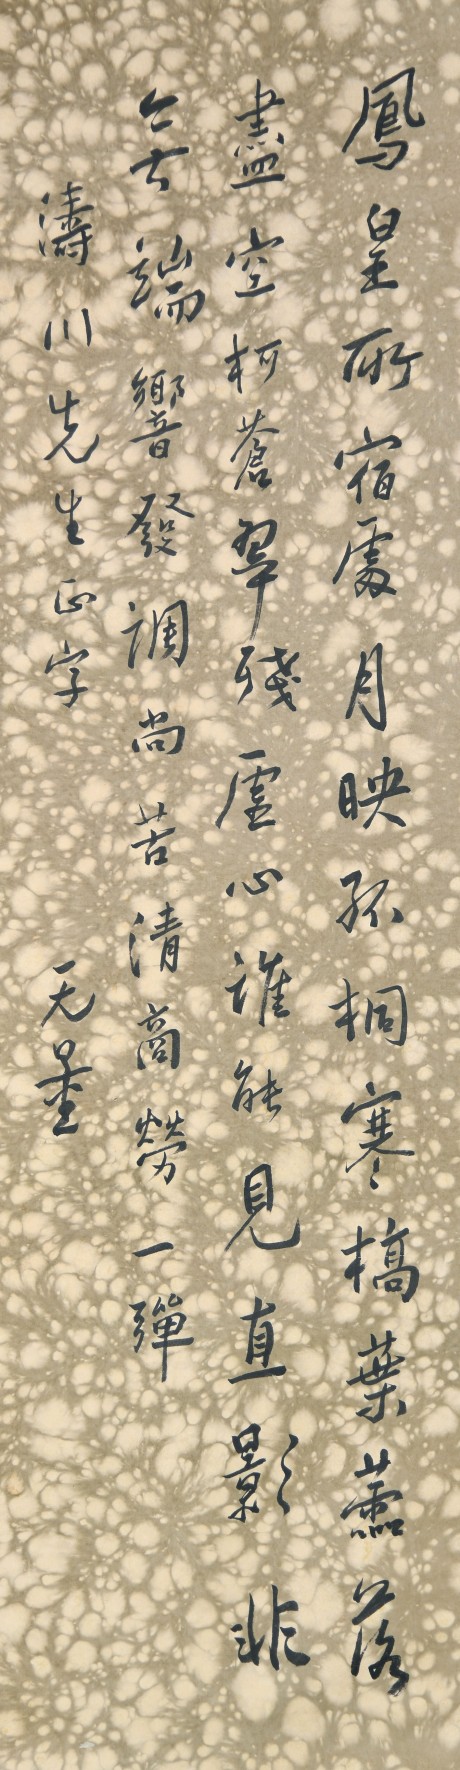 鳳皇所宿處月映孤桐寒槁葉蘦落
盡空柯蒼翠殘虛心誰能見直影非
無端響發調尚苦清商勞一彈
濤川先生正字 无量